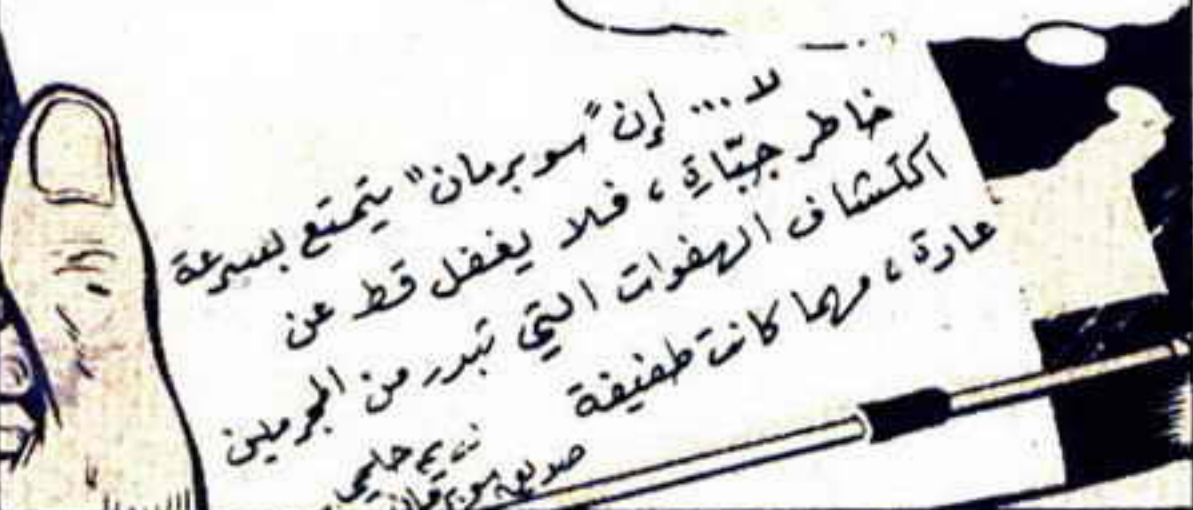 لا... إن "سوبرمان" يتمتع بسرعة
خاطر جبّارة، فلا يغفل قط عن
اكتشاف الهفوات التي تبدر من المجرمين
عادة، مهما كانت طفيفة
نديم حلمي
صديق سوبرمان